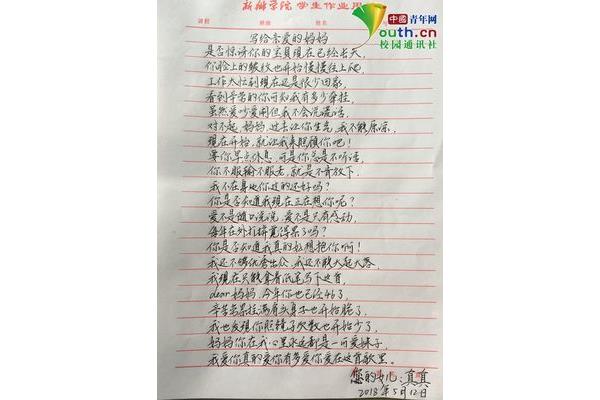 新湖学院 学生作业用
中國青年网
Youth.cn
校园通讯社
课程 班级 姓名
写给亲爱的妈妈
是否惊讶你的宝贝现在已经长大,
你脸上的皱纹也开始慢慢往上爬,
工作太忙到现在还是很少回家,
看到辛苦的你可知我有多少牵挂,
虽然爱吵爱闹但我不会说谎话,
对不起,妈妈,过去让你生气,我不能原谅,
现在开始,就让我来照顾你吧!
要你早点休息,可是你总是不听话,
你不服输不服老,就是不肯放下,
我不在身边你过的还好吗?
你是否知道我现在正在想你呢?
爱不是随口说说,爱不是只有感动,
每年在外打拼觉得累了吗?
你是否知道我真的好想抱你啊!
我还不够优秀出众,我还不能大起大落,
我现在只能拿着纸笔写下这首,
dear妈妈,今年你也已经46了,
辛苦
我也发现你照镜子次数也开始少了,
妈妈你在我心里永远都是一可爱妹子,
我爱你真的爱你有多爱你爱在这首歌里。
您的女儿:真真
2018年5月12日